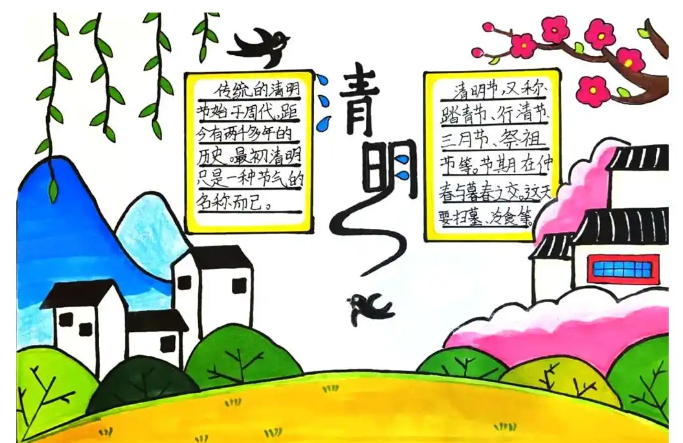 传统的清明
节始于周代,距
今有两千多年的
历史。最初清明
只是一种节气的
名称而已。
清明
清明节,又称
踏青节、行清节
三月节、祭祖
节等。节期在仲
春与暮春之交。这天
要扫墓、冷食等。